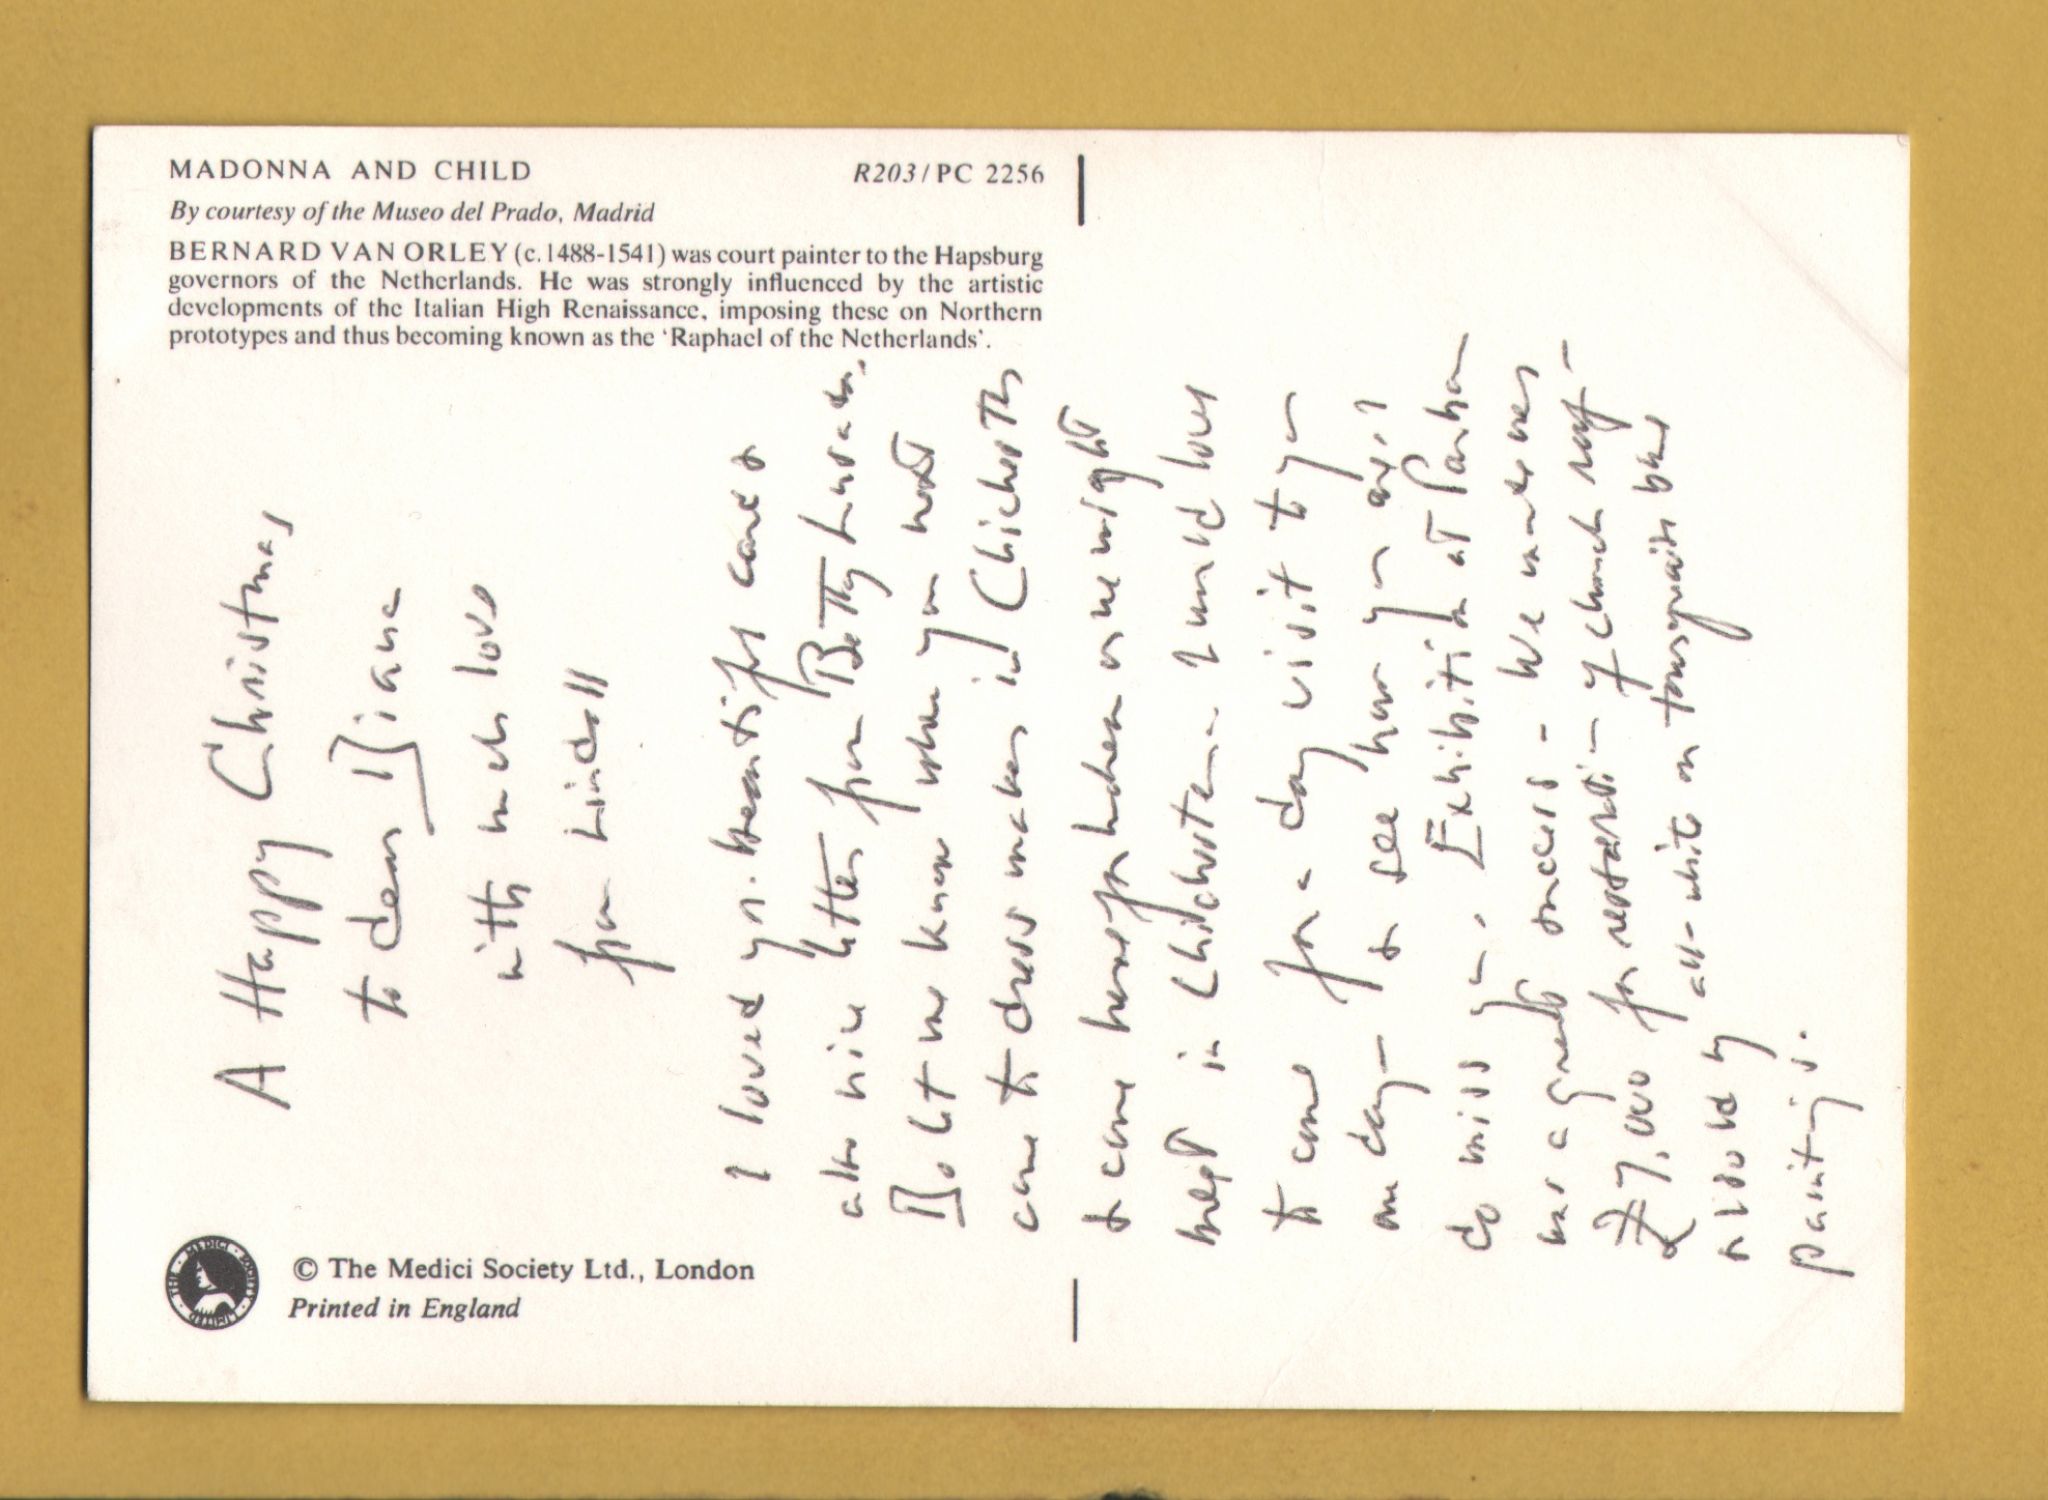 MADONNA AND CHILD R203/PC 2256
By courtesy of the Museo del Prado, Madrid
BERNARD VAN ORLEY (c.1488-1541) was court painter to the Hapsburg
governors of the Netherlands. He was strongly influenced by the artistic
developments of the Italian High Renaissance, imposing these on Northern
prototypes and thus becoming known as the 'Raphael of the Netherlands'.
A Happy Christmas
to dear Diana
with much love
from
I loved yr. beautiful card &
also nice letter from Betty
Do let me know when you next
come to dress maker in Chichester
& come here for when one might
meet in Chichester. I would love
to come for a day visit to you
one day - & see how you are. I
do miss you. Exhibition at Parham
was a great success - We
£7,000 for restoration of church roof -
all white on
by
paintings.
THE MEDICI SOCIETY LIMITED
© The Medici Society Ltd., London
Printed in England